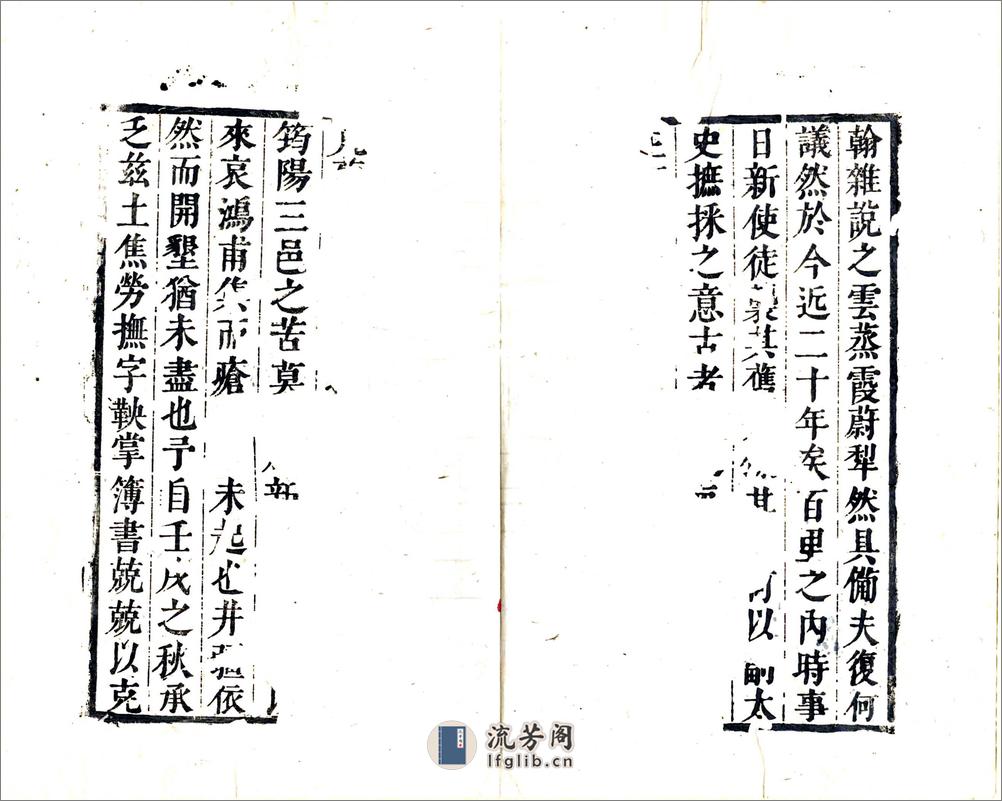 翰雜說之雲蒸霞蔚犁然具備夫復何
議然於今近二十年矣百里之內時事
日新使徒襲其舊甘可以副太
史摭採之意古者
新
筠陽三邑之苦莫
來哀鴻甫集而瘡未起也井疆依
然而開墾猶未盡也予自壬戌之秋承
乏茲土焦勞撫字鞅掌簿書兢兢以克
流芳阁
lfglib.cn